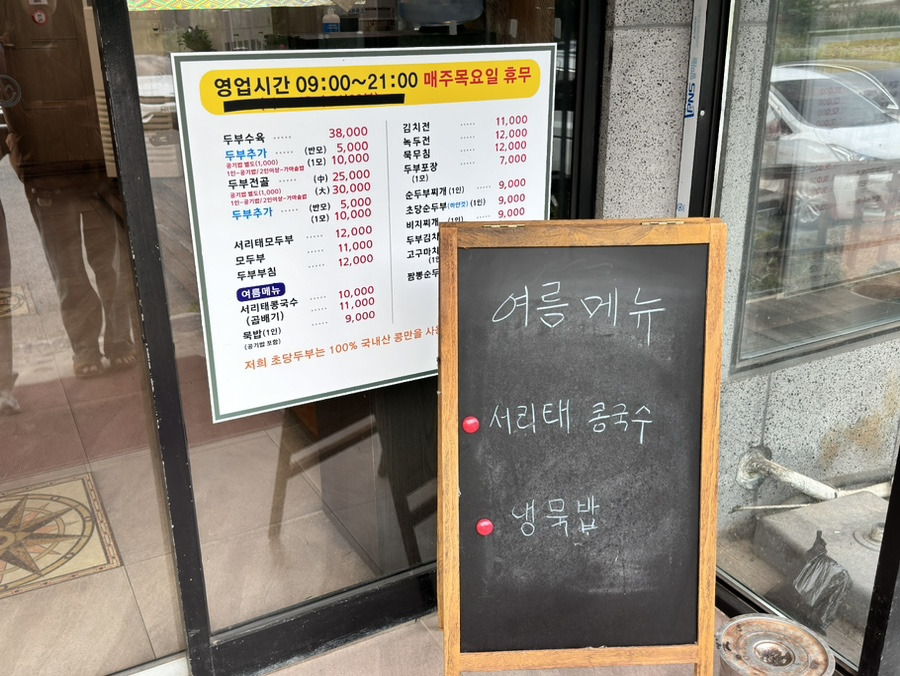 영업시간 09:00~21:00 매주목요일 휴무
두부수육 ····· 38,000
두부추가 ····· (반모) 5,000
공기밥 별도(1,000) (1모) 10,000
1인-공기밥/2인이상-가마솥밥
두부전골 ····· (中) 25,000
공기밥 별도(1,000) (大) 30,000
1인-공기밥/2인이상-가마솥밥
두부추가 ····· (반모) 5,000
(1모) 10,000
서리태모두부 ····· 12,000
모두부 ····· 11,000
두부부침 ····· 12,000
여름메뉴
서리태콩국수 ····· 10,000
(곱배기) ····· 11,000
묵밥(1인) ····· 9,000
(공기밥 포함)
김치전 ····· 11,000
녹두전 ····· 12,000
묵무침 ····· 12,000
두부포장 ····· 7,000
(1모)
순두부찌개 (1인) ····· 9,000
초당순두부(하얀것) (1인) 9,000
비지찌개 (1인) ····· 9,000
두부김치
고구마치
(1인
짬뽕순두
저희 초당두부는 100% 국내산 콩만을 사용
여름 메뉴
서리태 콩국수
냉묵밥
SNJ